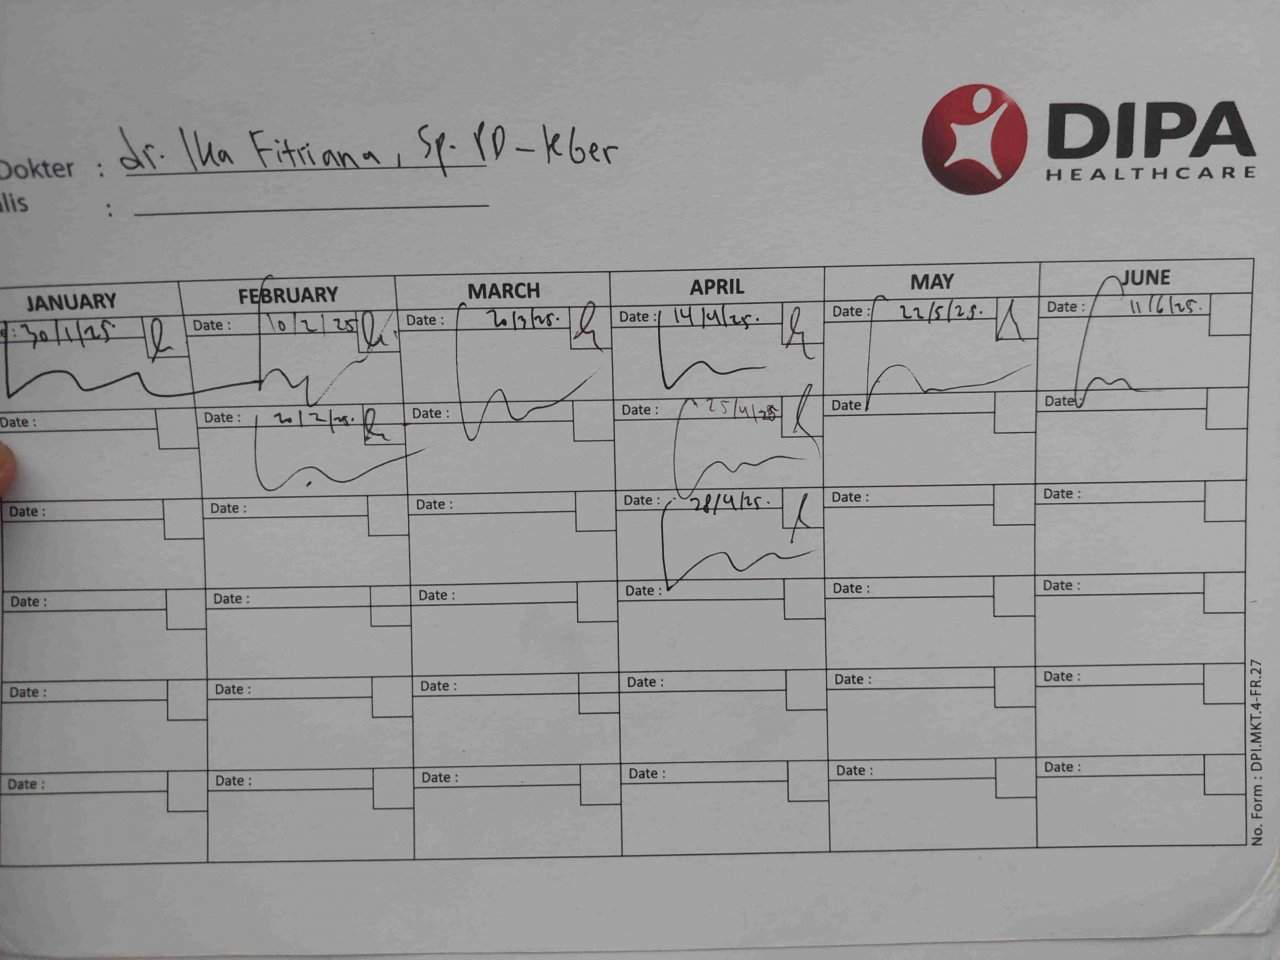 DIPA
HEALTHCARE
Dokter : dr. Ika Fitriana, Sp. PD - KGer
lis :
JANUARY FEBRUARY MARCH APRIL MAY JUNE
: 30/1/25. Date : 10/2/25 Date : 20/3/25. Date : 14/4/25. Date : 22/5/25. Date : 11/6/25.
Date : Date : 20/2/25. Date : Date : 25/4/25 Date : Date :
Date : Date : Date : Date : 28/4/25. Date : Date :
Date : Date : Date : Date : Date : Date :
Date : Date : Date : Date : Date : Date :
Date : Date : Date : Date : Date : Date :
No. Form : DPI.MKT.4-FR.27